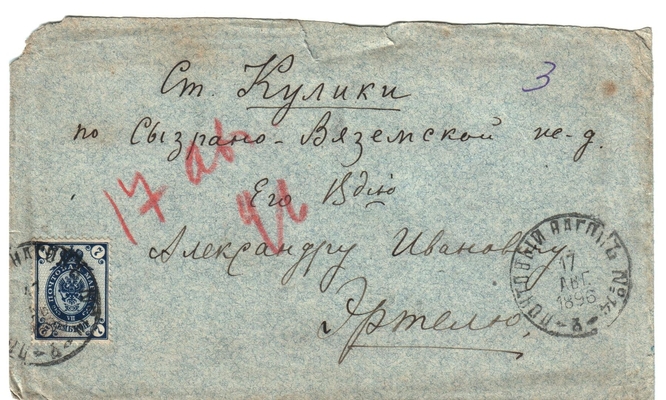 Ст. Кулики
3
по Сызрано-Вяземской же-д.
17 ав
Его Вдію
Александру Ивановичу
Эртелю
ПОЧТОВЫЙ ВАГОНЪ № 14
17
АВГ.
1896
7
ПОЧТОВАЯ МАР
VII
7